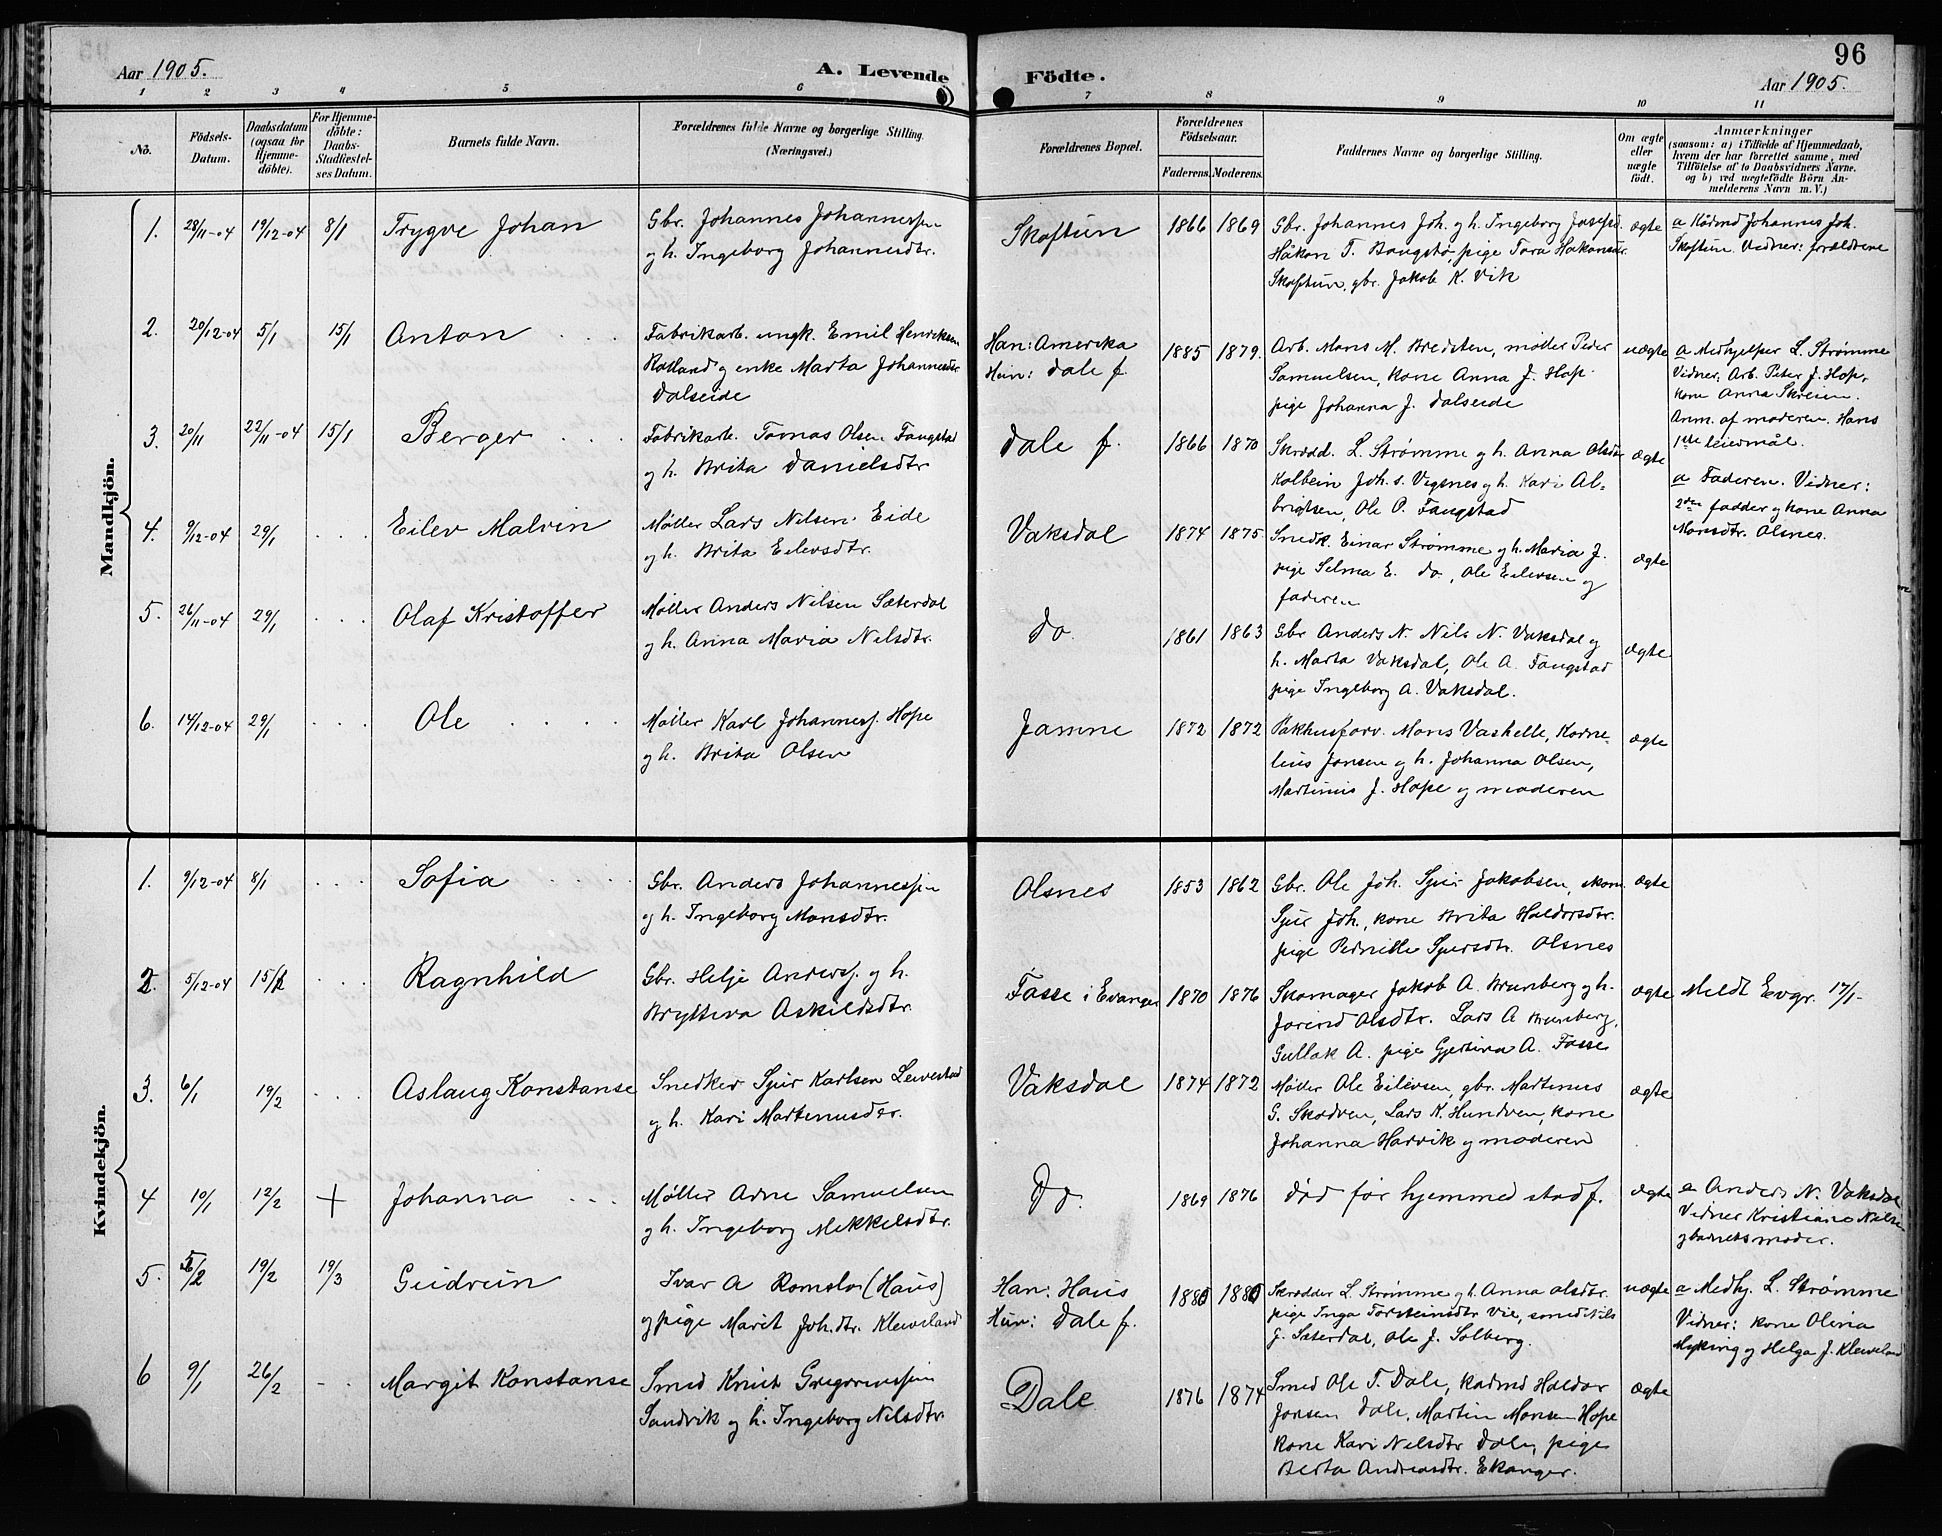 96
Aar 1905.
A. Levende
Födte.
Aar 1905.
1 2 3 4 5 6 7 8 9 10 11
No.
Födsels-
Datum.
Daabsdatum
(ogsaa for
Hjemme-
döbte).
For Hjemme-
döbte:
Daabs-
Stadfæstel-
ses Datum.
Barnets fulde Navn.
Forældrenes fulde Navne og borgerlige Stilling.
(Næringsvei.)
Forældrenes Bopæl.
Forældrenes
Födselsaar.
Faderens. Moderens.
Faddernes Navne og borgerlige Stilling.
Om ægte
eller
uægte
født.
Anmærkninger
(saasom: a) i Tilfælde af Hjemmedaab,
hvem der har forrettet samme, med
Tilföielse af to Daabsvidners Navne.
og b) ved uægtefödte Börn An-
melderens Navn m. V.)
Mandkjön.
1. 28/11-04 19/12-04 8/1 Trygve Johan
Gbr. Johannes Johannessen
og h. Ingeborg Johannesdtr.
Skoftun 1866 1869
Gbr. Johannes Joh. og h. Ingeborg Josefsd.
Håkon T. Bougstø, pige Tora Hakonsdtr.
Skoftun, gbr. Jakob K. Vik
ægte
a Kårmd Johannes Joh.
Skoftun. Vidner: forældrene
2. 20/12-04 5/1 15/1 Anton
Fabrikarb. ungk. Emil Henriksen
Rolland og enke Marta Johannesdtr
Dalseide
Han: Amerika
Hun: Dale f.
1885 1879.
Arb. Mons M. Bredsten, møller Peder
Samuelsen, kone Anna J. Hop.
pige Johanna J. Dalseide
uægte
a Medhjelper L. Strømme
Vidner: Arb. Peter J. Hop,
kone Anna Skreien.
Anm. af moderen. Hans
1ste leiermål.
3. 20/11 22/11-04 15/1 Berger
Fabrikarb. Tomas Olsen Fangstad
og h. Brita Danielsdtr
Dale f. 1866 1870
Skrædd. L. Strømme og h. Anna Olsdtr
Kolbein Joh. s. Vigsnes og h. Kari Al-
brigtsen, Ole P. Fangstad
ægte
a Faderen. Vidner:
2den fadder og kone Anna
Monsdtr. Olsnes.
4. 9/12-04 29/1 Eilev Malvin
Møller Lars Nilsen Eide
og h. Brita Eilevsdtr.
Vaksdal 1874 1875.
Snedk. Einar Strømme og h. Maria J.
pige Selma E. do, Ole Eilevsen og
faderen
ægte
5. 26/11-04 29/1 Olaf Kristoffer
Møller Anders Nilsen Sæterdal
og h. Anna Maria Nilsdtr.
do. 1861 1863
Gbr Anders N. Nils N. Vaksdal og
h. Marta Vaksdal, Ole A. Fangstad
pige Ingeborg A. Vaksdal.
ægte
6. 14/12-04 29/1 Ole
Møller Karl Johanness. Hope
og h. Brita Olsen
Jamne 1872 1872
Pakhusforv. Mons Vashelle, Korne-
lius Jonsen og h. Johanna Olsen,
Martinus J. Hope og moderen
ægte
Kvindekjön.
1. 9/12-04 8/1 Sofia
Gbr. Anders Johannessen
og h. Ingeborg Monsdtr.
Olsnes 1853 1862
Gbr. Ole Joh. Sjur Jakobsen, skom.
Sjur Joh., kone Brita Haldorsdtr.
pige Pernille Sjursdtr. Olsnes
ægte
2. 5/12-04 15/1 Ragnhild
Gbr. Helje Anderss. og h.
Brytteva Askildsdtr.
Fosse i Evanger 1870 1876
Skomager Jakob A. Brunberg og h.
Jorind Olsdtr. Lars A Brunberg,
Gullak A. pige Gjertina A. Fosse
ægte
Meldt Evgr. 17/1-
3. 6/1 19/2 Aslaug Konstanse
Snedker Sjur Karlsen Leivestad
og h. Kari Martinusdtr.
Vaksdal 1874 1872
Møller Ole Eilevsen, gbr. Martinus
G. Skodven, Lars K. Hundven, kone
Johanna Harvik og moderen
ægte
4 10/1 12/2 + Johanna
Møller Arne Samuelsen
og h. Ingeborg Mikkelsdtr.
Do. 1869 1876
Død før hjemmed. stadf.
ægte
a Anders N. Vaksdal
Vidner Kristiane Nilsen
og barnets moder.
5. 5/2 19/2 19/3 Gudrun
Ivar A Romslo (Haus)
og pige Marit Joh.dtr. Kleiveland
Han: Haus
Hun: Dale f.
1880 1880
Skrædder L. Strømme og h. Anna Olsdtr.
pige Inga Torsteinsdtr Vie, smed Nils
J. Sæterdal, Ole J. Solberg.
uægte
a Medhj. L. Strømme
Vidner: kone Olina
Myking og Helga J. Kleiveland
6 9/1 26/2 Margit Konstanse
Smed Knut Gregoriussen
Sandvik og h. Ingeborg Nilsdtr.
Dale 1876 1874
Smed Ole T. Dale, kårmd Haldor
Jonsen Dale, Martin Monsen Hope
kone Kari Nilsdtr Dale, pige
Berta Andreasdtr. Ekanger.
ægte